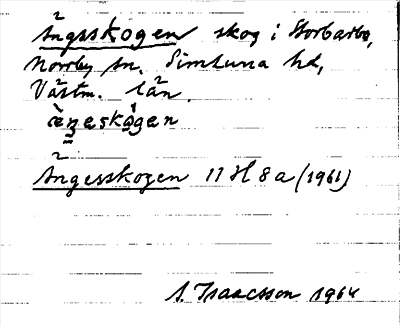 Ängsskogen skog i Storbarbo,
Norrby sn. Simtuna hd,
Västm. län.
Ängesskogen 11 H 8 a (1961)
S. Isaacsson 1964